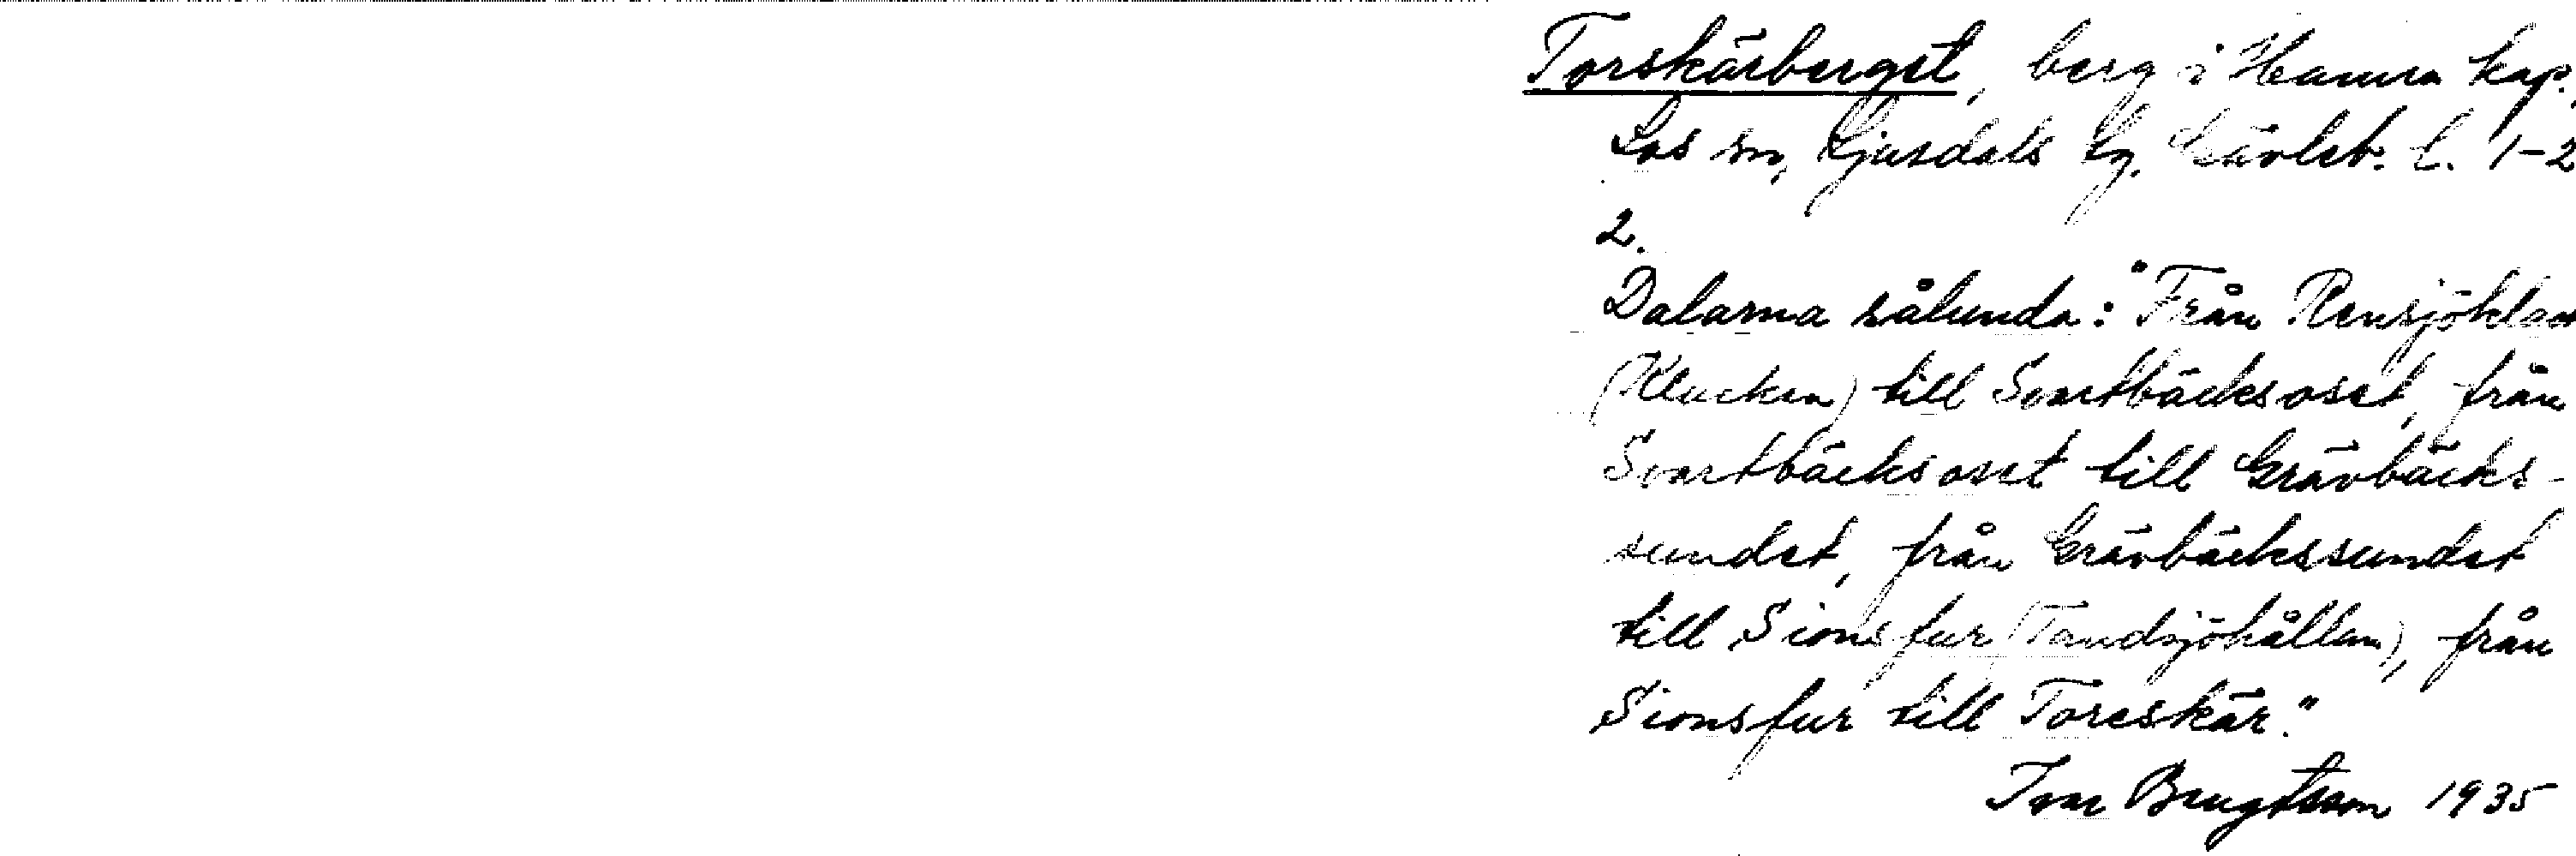 Torskärberget, berg i Hamra kap.,
Los sn, Ljusdals tg. Gävleb. l. 1-2
2.
Dalarna sålunda: "Från Rensjöklack
(Klacken) till Svartbäcksoset, från
Svartbäcksoset till Grävbäcks-
sundet, från Grävbäckssundet
till Sionsfur (Tandsjöhållan), från
Sionsfur till Toreskär."
Ivar Bengtsson 1935